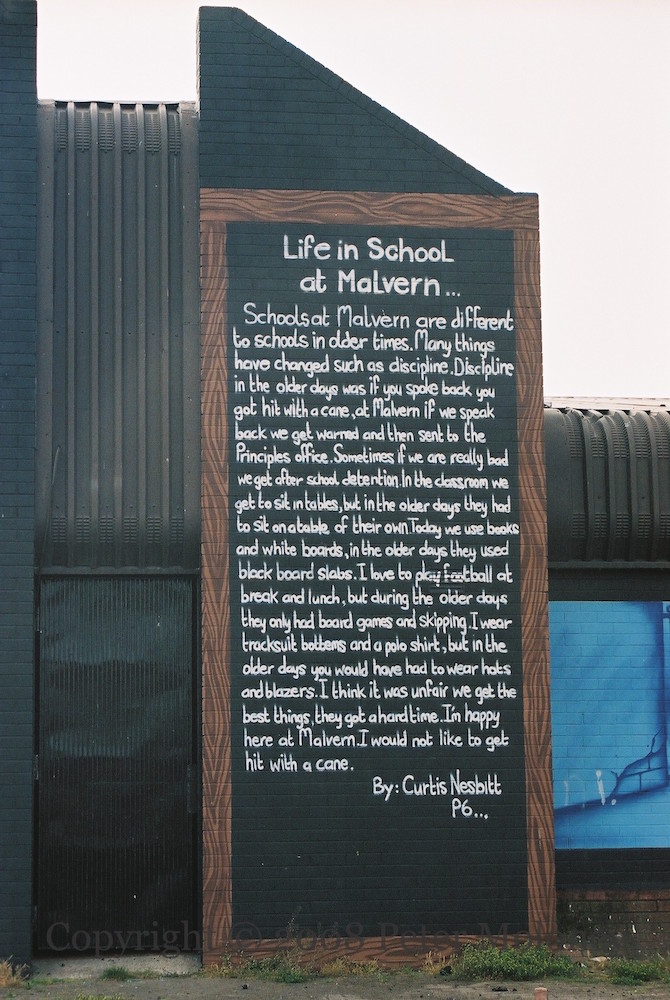 Life in School
at Malvern...
Schools at Malvern are different
to schools in older times. Many things
have changed such as discipline. Discipline
in the older days was if you spoke back you
got hit with a cane, at Malvern if we speak
back we get warned and then sent to the
Principles office. Sometimes if we are really bad
we get after school detention. In the classroom we
get to sit in tables, but in the older days they had
to sit on a table of their own. Today we use books
and white boards, in the older days they used
black board slabs. I love to play football at
break and lunch, but during the older days
they only had board games and skipping. I wear
tracksuit bottems and a polo shirt, but in the
older days you would have had to wear hats
and blazers. I think it was unfair we get the
best things, they got a hard time. I'm happy
here at Malvern. I would not like to get
hit with a cane.
By: Curtis Nesbitt
P6...
Copyright © Peter